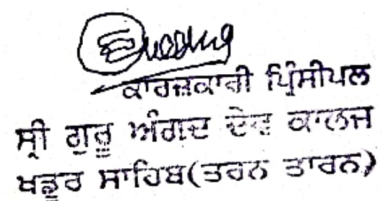 ਕਾਰਜਕਾਰੀ ਪ੍ਰਿੰਸੀਪਲ
ਸ੍ਰੀ ਗੁਰੂ ਅੰਗਦ ਦੇਵ ਕਾਲਜ
ਖਡੂਰ ਸਾਹਿਬ(ਤਰਨ ਤਾਰਨ)